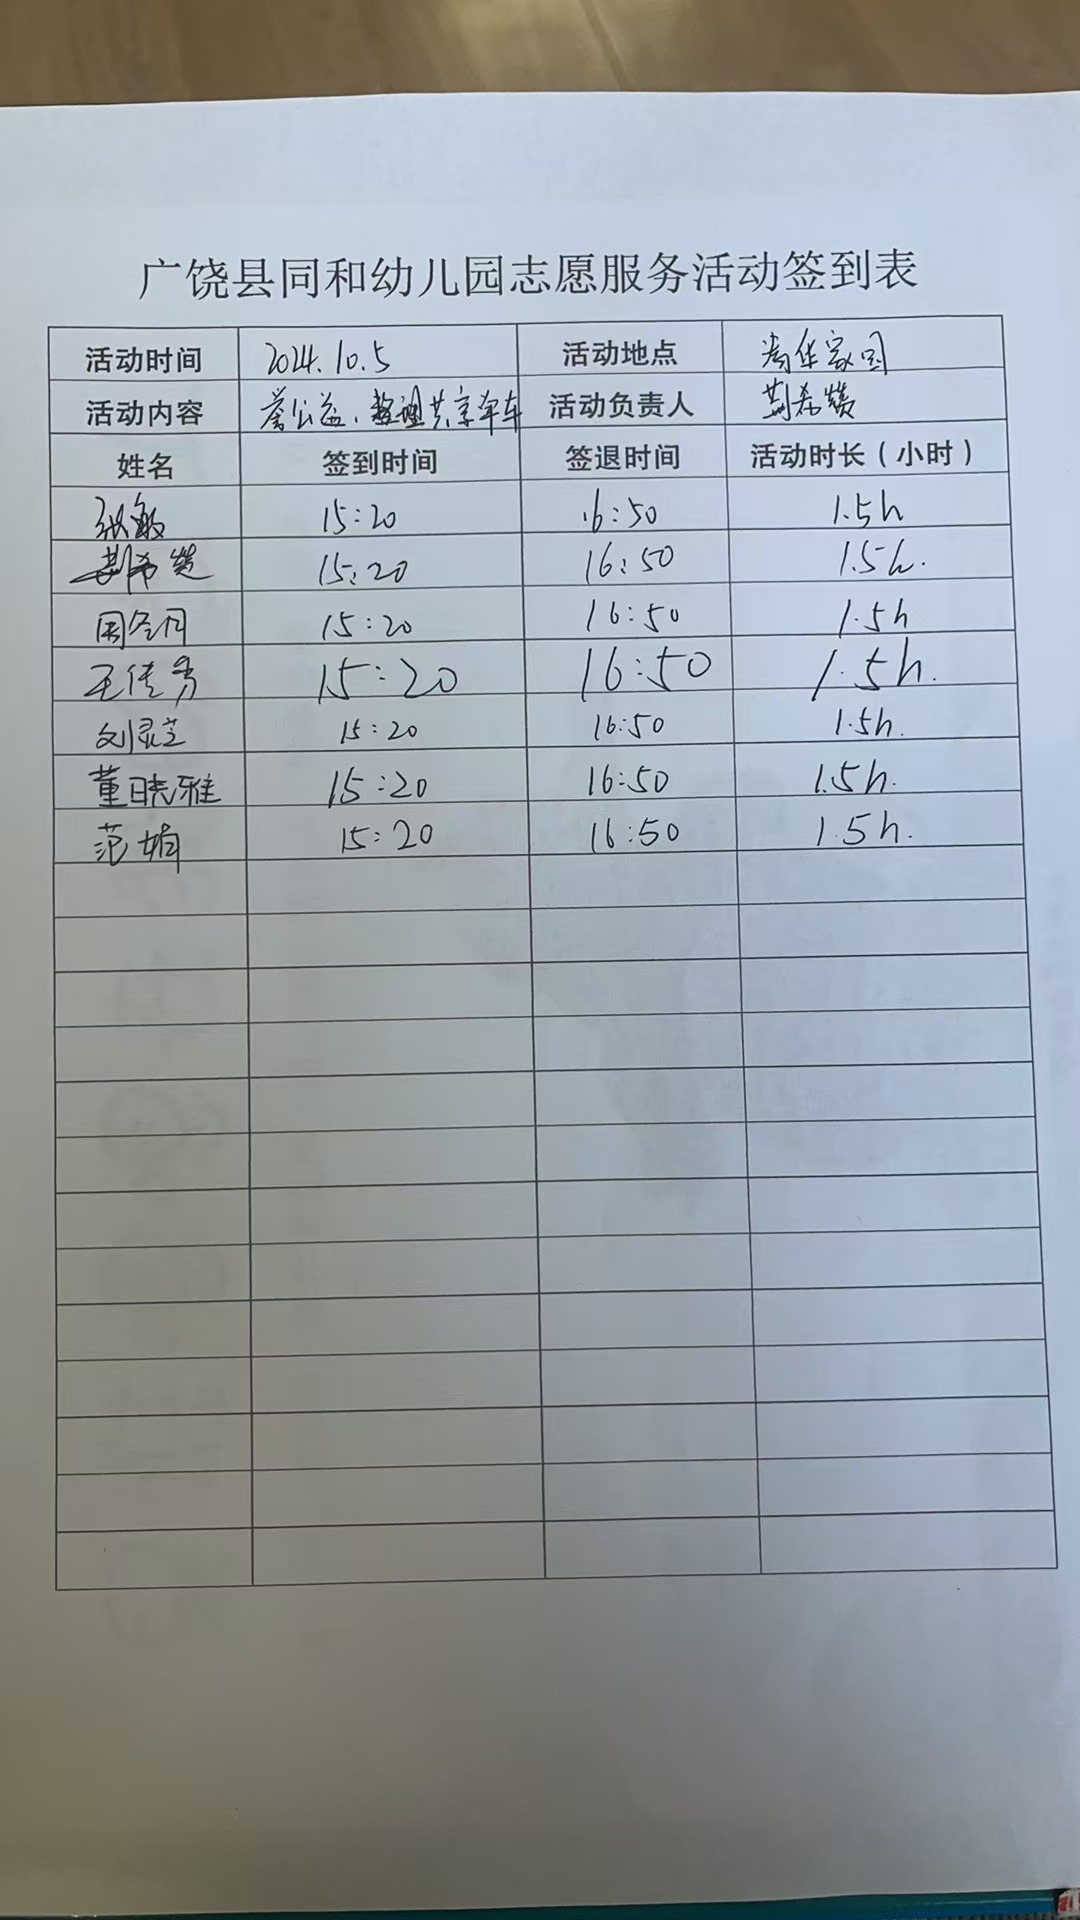 广饶县同和幼儿园志愿服务活动签到表
活动时间 2024.10.5 活动地点 家园
活动内容 公益、整理共享单车 活动负责人 荆希赞
姓名 签到时间 签退时间 活动时长（小时）
张敏 15:20 16:50 1.5h
荆希赞 15:20 16:50 1.5h.
周冬月 15:20 16:50 1.5h
王传秀 15:20 16:50 1.5h.
刘灵芝 15:20 16:50 1.5h.
董晓雅 15:20 16:50 1.5h.
范娟 15:20 16:50 1.5h.